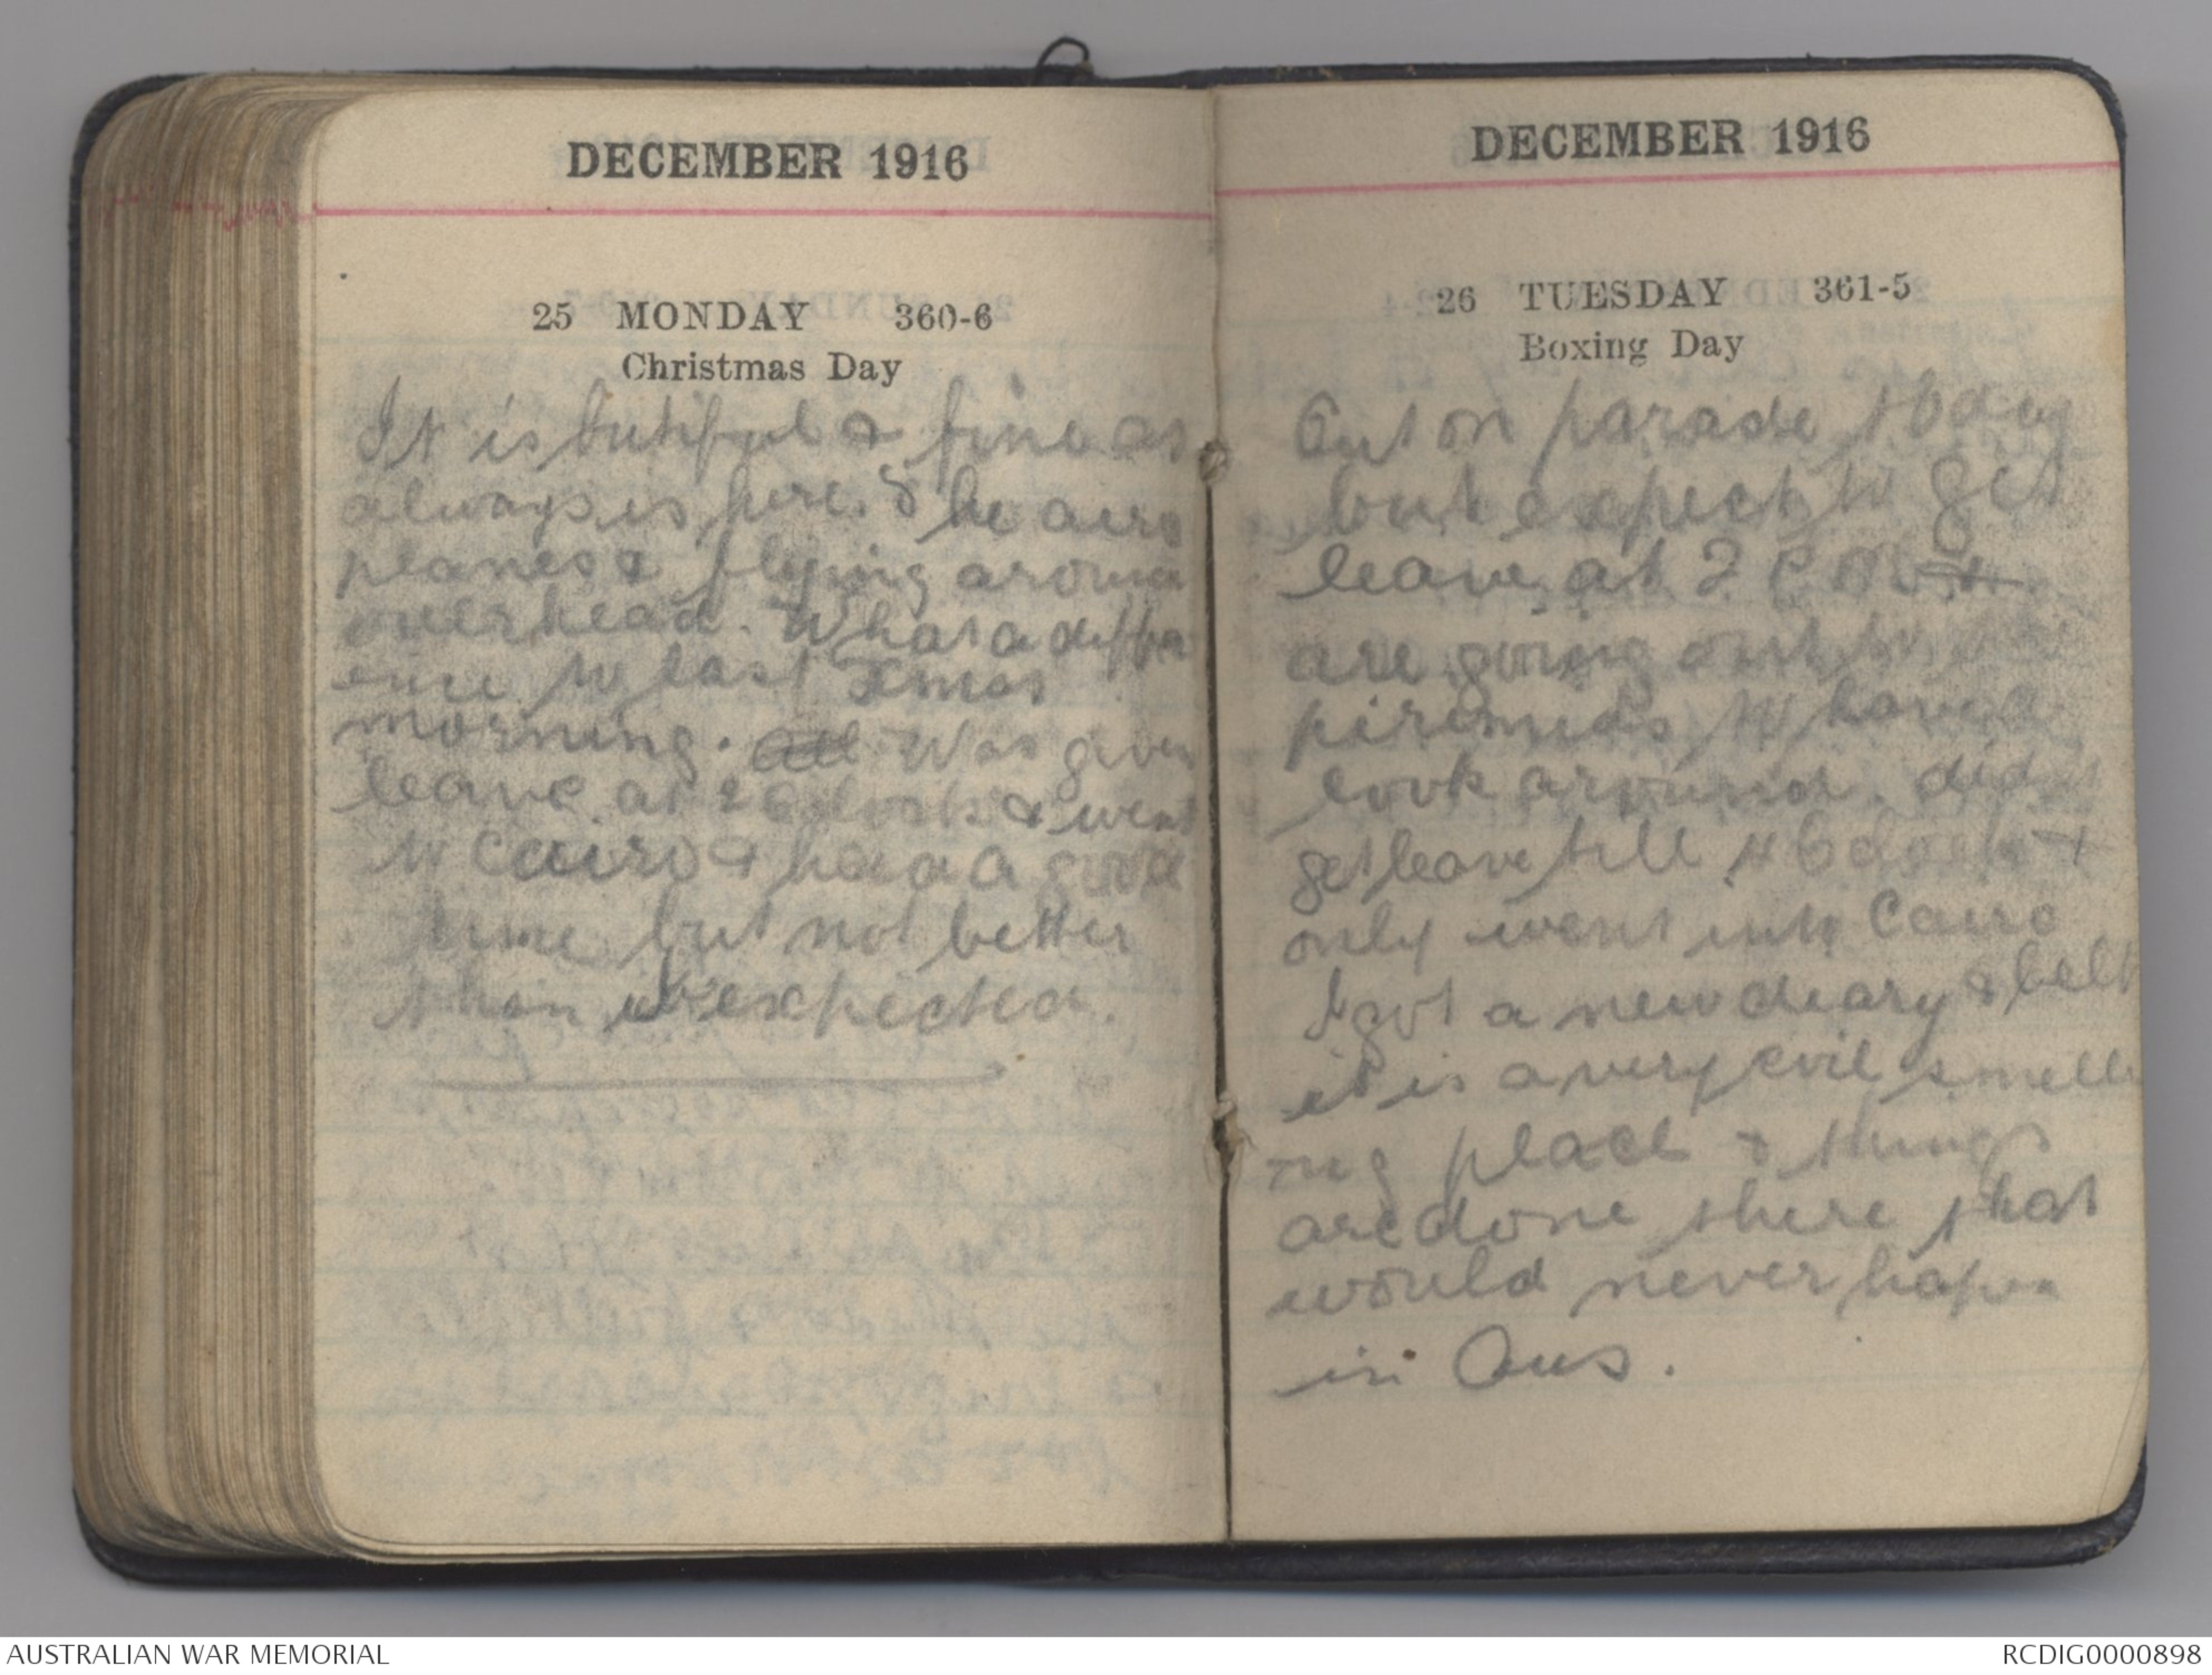 DECEMBER 1916
25 MONDAY 360-6
Christmas Day
It is butiful & fine as
always is here. The airo
planes & flying around
overhead. What a differ
ence to last Xmas
morning. all Was given
leave at 2 Oclock & went
to Cairo & had a good
time but not better
than expected.
DECEMBER 1916
26 TUESDAY 361-5
Boxing Day
Out on parade today
but expect to get
leave at 2 &
are going out to
piremids to have a
look around. didnt
get leave till &
only went into Cairo
I got a new diary & belt
it is a very evil smelli
ng place & things
are done there that
would never hapen
in Aus.
AUSTRALIAN WAR MEMORIAL
RCDIG0000898